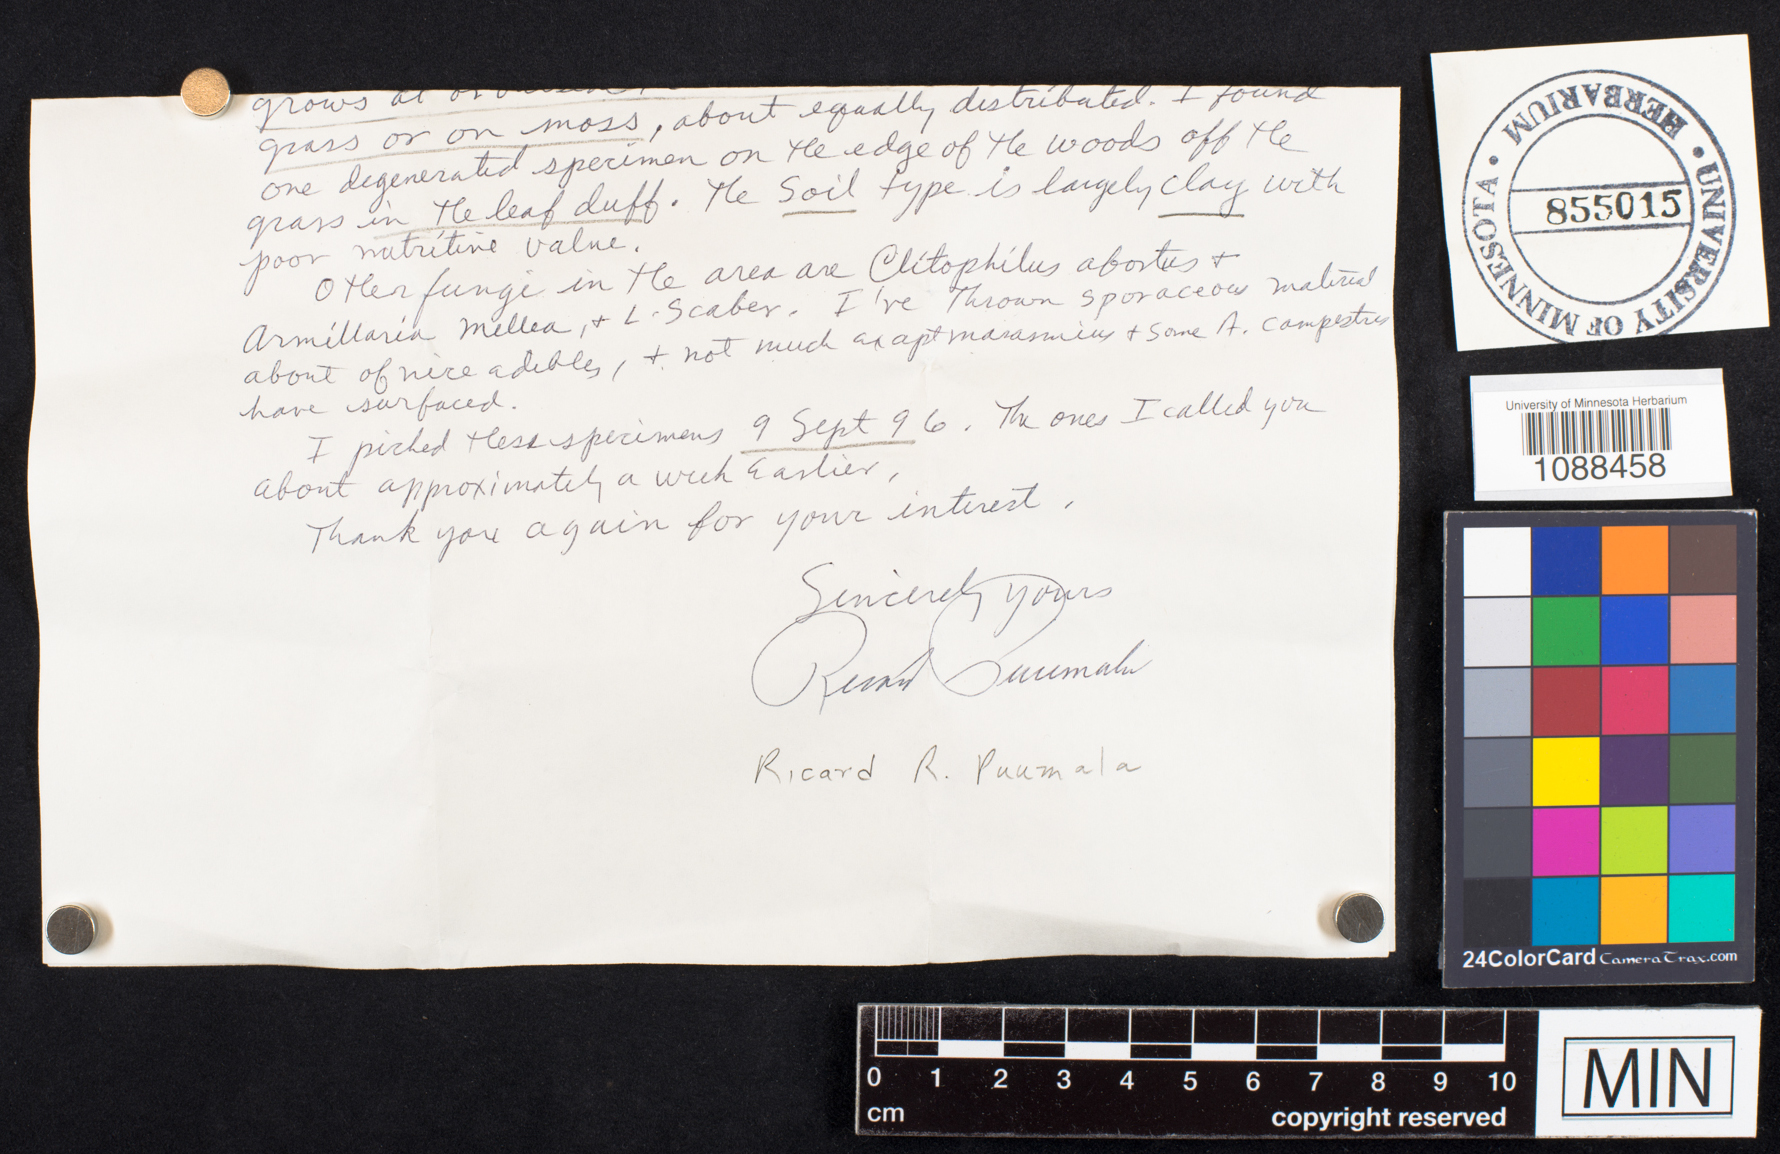 grows at or
grass or on moss, about equally distributed. I found
one degenerated specimen on the edge of the woods off the
grass in the leaf duff. The Soil type is largely clay with
poor nutritive value.
Other fungi in the area are Clitophilus abortus +
Armillaria mellea, + L. Scaber. I've thrown sporaceous material
about of nice edibles, + not much except marasmius + some A. campestris
have surfaced.
I picked these specimens 9 Sept 96. The ones I called you
about approximately a week earlier.
Thank you again for your interest.
Sincerely yours
Ricard Puumala
Ricard R. Puumala
UNIVERSITY OF MINNESOTA • HERBARIUM •
855015
University of Minnesota Herbarium
1088458
24ColorCard CameraTrax.com
0 1 2 3 4 5 6 7 8 9 10
cm
copyright reserved
MIN